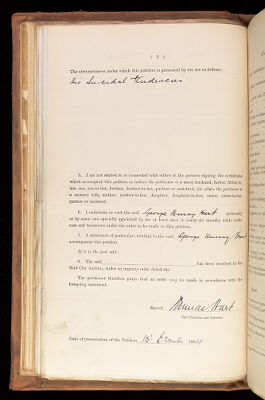 ( 2 )
The circumstances under which this petition is presented by me are as follows:
His Suicidal tendencies
5. I am not related to or connected with either of the persons signing the certificates
which accompany this petition as (where the petitioner is a man) husband, father, father-in-
law, son, son-in-law, brother, brother-in-law, partner or assistant, (or where the petitioner is
a woman) wife, mother, mother-in-law, daughter, daughter-in-law, sister, sister-in-law,
partner or assistant.
6. I undertake to visit the said George Murray Hurt personally
or by some one specially appointed by me at least once in every six months while under
care and treatment under the order to be made on this petition.
7. A statement of particulars relating to the said George Murray Hurt
accompanies this petition.
If it is the fact add:
8. The said has been received in the
Hull City Asylum, under an urgency order dated the
The petitioner therefore prays that an order may be made in accordance with the
foregoing statement.
Signed Hurt
Date of presentation of the Petition, 15 December